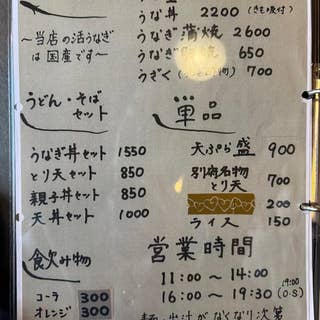 うな丼 2200 (きも吸付)
うなぎ蒲焼 2600
うなぎ 650
うざく 700
～当店の活うなぎ
は国産です～
うどん・そば
セット
うなぎ丼セット 1550
とり天セット 850
親子丼セット 850
天丼セット 1000
飲み物
コーラ 300
オレンジ 300
単品
天ぷら盛 900
別府名物
とり天 700
200
ライス 150
営業時間
11:00 ～ 14:00
16:00 ～ 19:30 (19:00 O・S)
麺・出汁がなくなり次第